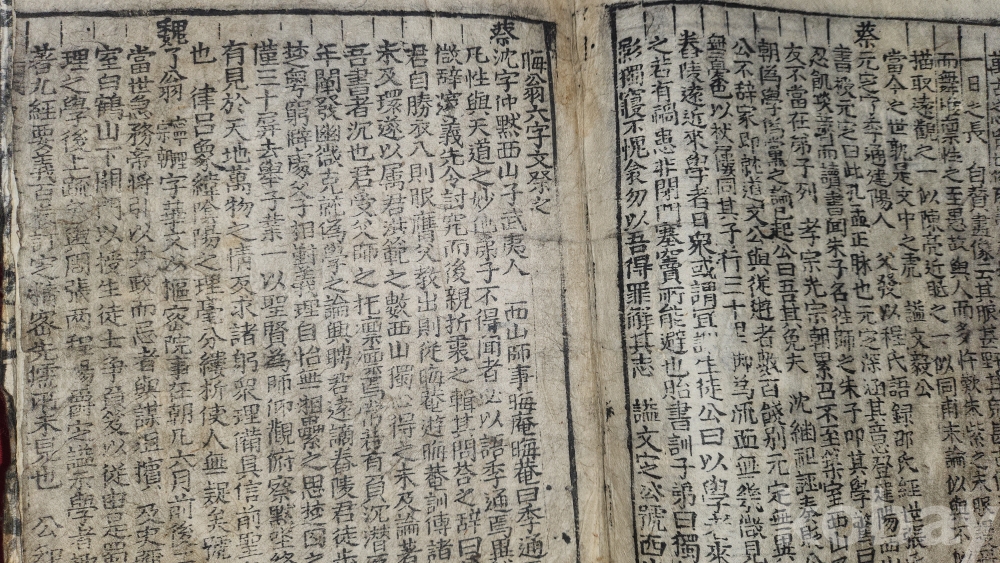 一日之長 自贊畫像云其眼甚野其
而舞此稟性之至愚故與人而多忤歎朱紫之未服
描取遠觀之一似陳亮近眡之一似同甫未論似與不
當今之世孰是文中之虎 諡文毅公
蔡 元定字季通建陽人 父發以程氏語錄邵氏經世張
書授元定曰此孔孟正脉也元定深涵其意登建陽西山
忍飢啖薺而讀書聞朱子名往師之朱子叩其學驚曰
友不當在弟子列 孝宗光宗朝累召不至築室西山
朝偽學偽黨之論已起公曰吾其免夫 沈繼祖誣奏
公不辭家即就道文公與從遊者數百餞別元定無異
無憂以杖屨同其子行三千里脚為流血無幾微見
舂陵遠近來學者日衆或謂宜謝生徒公曰以學者來
之若有禍患非閉門塞竇所能避也貽書訓子弟曰獨
影獨寢不愧衾勿以吾得罪懈其志 諡文定公號西
晦翁六字文祭之
蔡 沈字仲默西山子武夷人 西山師事晦庵晦庵曰季通
凡性與天道之妙他弟子不得聞者必以語季通焉異
微辭奧義先令討究而後親折衷之輯其問答之辭曰
君自勝衣入則服膺父教出則從晦菴遊晦菴訓傳諸
未及環遂以属君洪範之數西山獨心得之未及論著
吾書者沉也君受父師之托凜凜焉常若有負沉潛
年闡發幽微克就偽學之論興聘君遠謫舂陵君徒步
楚粵窮僻處父子相對義理自怡無湘纍之思楚囚之
僅三十屛去舉子業一以聖賢為師仰觀俯察默坐終
有見於天地萬物之情反求諸躬衆理備具信前聖
也 律呂象緯陰陽之理毫分縷析使人無疑矣號
魏 了翁 字華父以樞密院事在朝凡六月前後
當世急務帝將引以共政而忌者與謀沮擯 及史
室白鶴山下開門以授生徒士爭負笈以從由是蜀
理之學後上疏 與周張兩程錫爵定諡示學者趣
著九經要義百卷訂定精密先儒所未見也 公